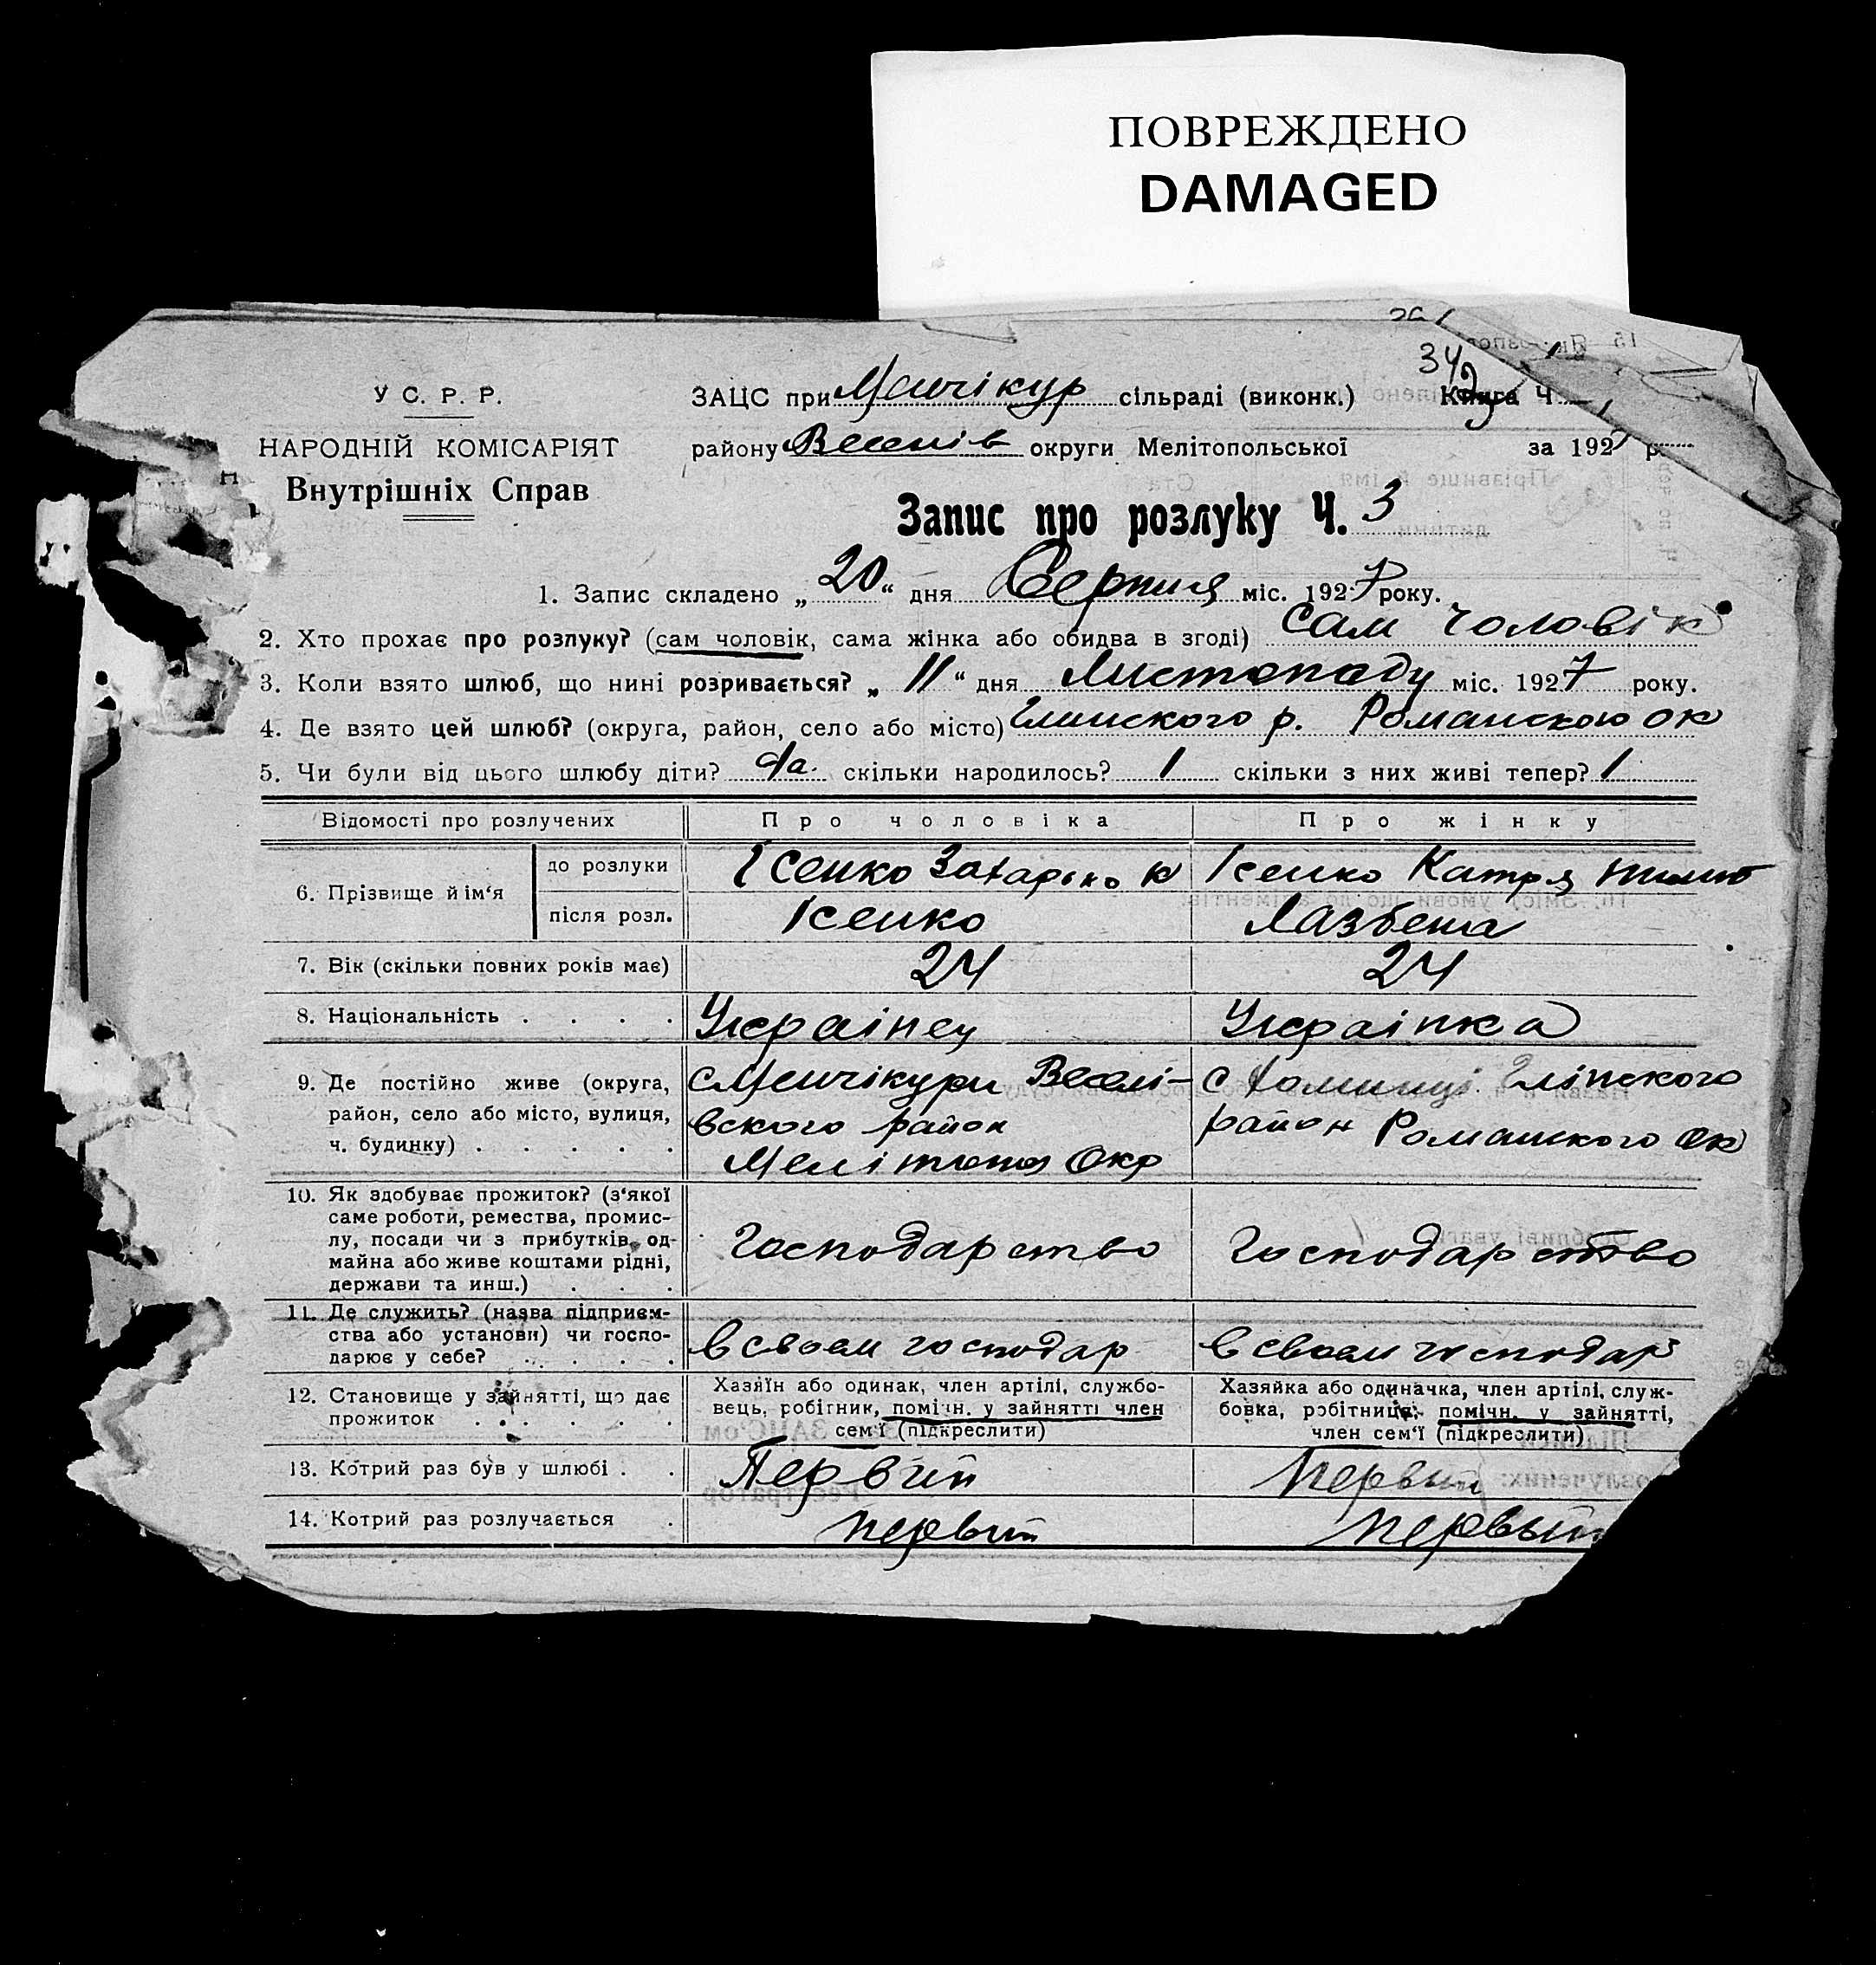 ПОВРЕЖДЕНО
DAMAGED
34
У С. Р. Р.
НАРОДНІЙ КОМІСАРІЯТ
Внутрішніх Справ
ЗАЦС при Менчікур сільраді (виконк.) Книга Ч.
району Веселів округи Мелітопольської за 1927 р.
Запис про розлуку Ч. 3
1. Запис складено „20“ дня Серпня міс. 1927 року.
2. Хто прохає про розлуку? (сам чоловік, сама жінка або обидва в згоді) сам чоловік
3. Коли взято шлюб, що нині розривається? „11“ дня Листопаду міс. 1927 року.
4. Де взято цей шлюб? (округа, район, село або місто) Глинского р. Романского ок
5. Чи були від цього шлюбу діти? да. скільки народилось? 1 скільки з них живі тепер? 1
Відомості про розлучених Про чоловіка Про жінку
6. Прізвище й ім‘я
до розлуки Ісенко Захарько К Ісенко Катря
після розл. Ісенко Лазбена
7. Вік (скільки повних років має) 24 24
8. Національність . . . . Українец Українка
9. Де постійно живе (округа, район, село або місто, вулиця, ч. будинку) . . . . .
с Менчікури Веселі-
вского район
Мелітопол Окр
с Глінского
район Романского Ок
10. Як здобуває прожиток? (з‘якої
саме роботи, ремества, промис-
лу, посади чи з прибутків, од-
майна або живе коштами рідні,
держави та инш.) . . .
Господарство Господарство
11. Де служить? (назва підприєм-
ства або установи) чи госпо-
дарює у себе? . . . .
в своем господар в своем господар
12. Становище у зайнятті, що дає
прожиток . . . . .
Хазяїн або одинак, член артілі, службо-
вець, робітник, помічн. у зайнятті член
сем‘ї (підкреслити)
Хазяйка або одиначка, член артілі, служ-
бовка, робітниця, помічн. у зайнятті,
член сем‘ї (підкреслити)
13. Котрий раз був у шлюбі . . Первий Первый
14. Котрий раз розлучається . первый первый